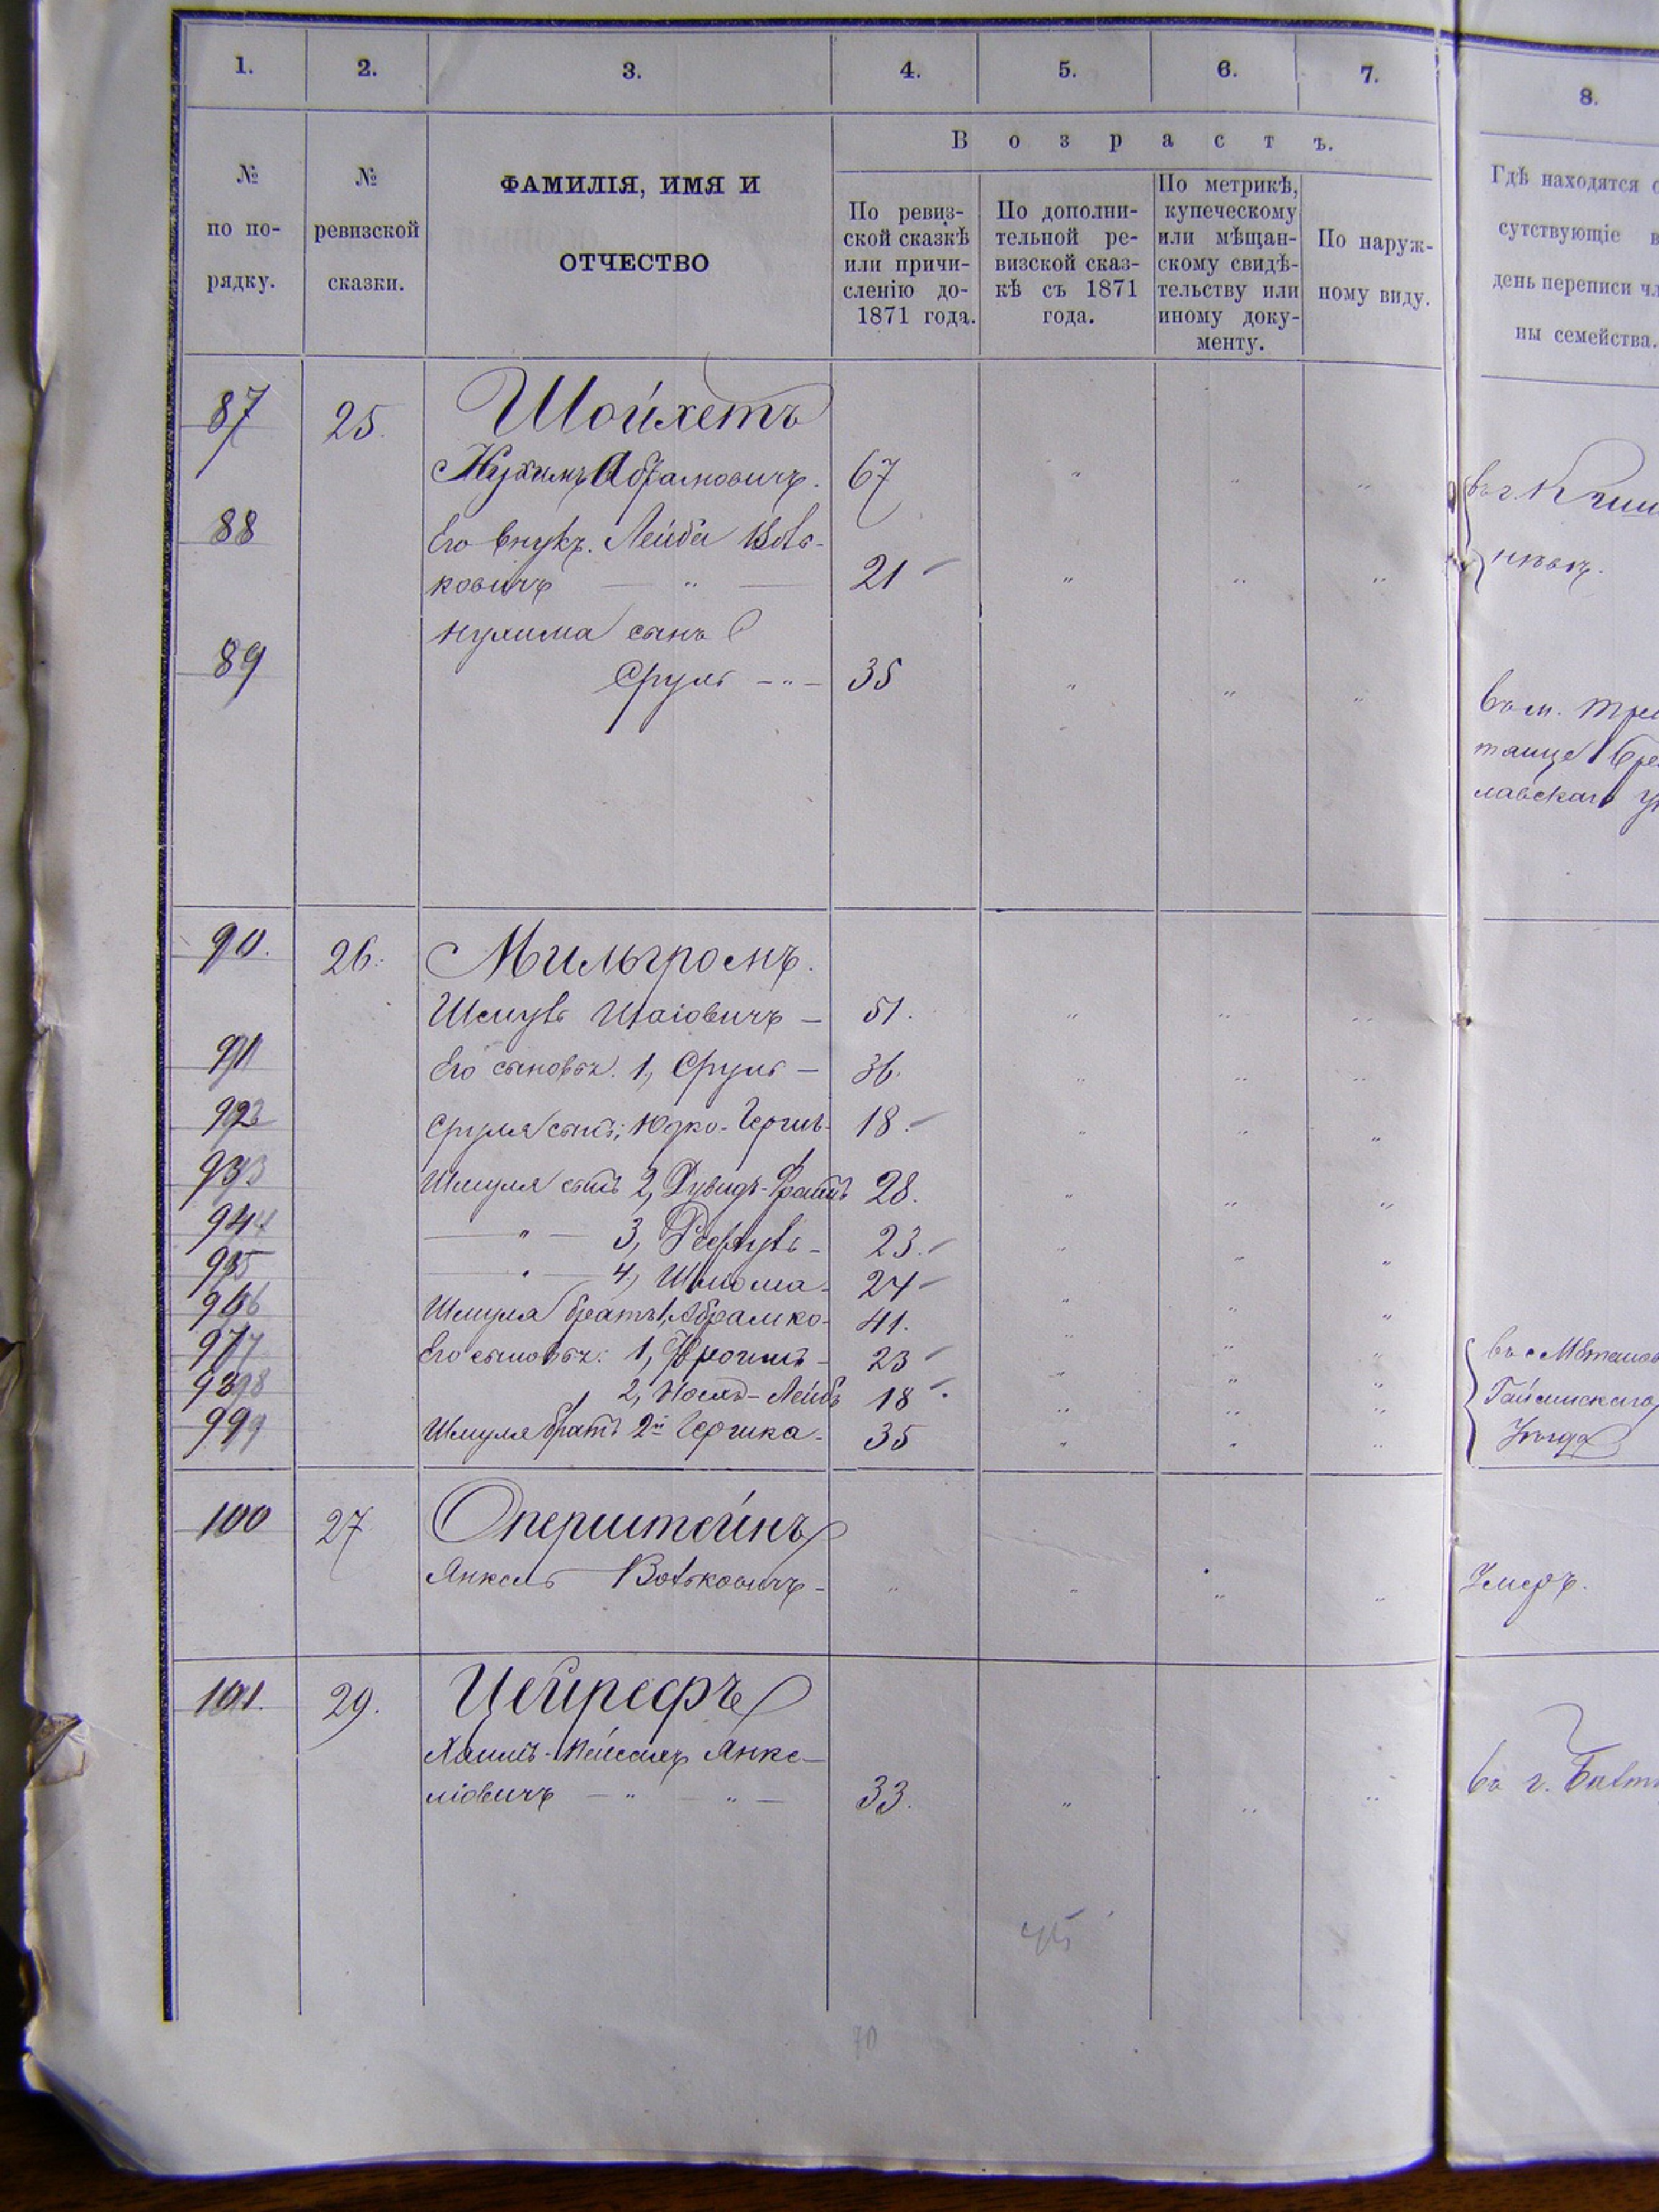 1. 2. 3. 4. 5. 6. 7. 8.
№ по по-рядку.
№ ревизской сказки.
ФАМИЛІЯ, ИМЯ И
ОТЧЕСТВО
Возрастъ.
По ревиз-
ской сказкѣ
или причи-
сленію до-
1871 года.
По дополни-
тельной ре-
визской сказ-
кѣ съ 1871
года.
По метрикѣ,
купеческому
или мѣщан-
скому свидѣ-
тельству или
иному доку-
менту.
По наруж-
ному виду.
Гдѣ находятся
сутствующіе
день переписи
ны семейства.
87 25. Шойхетъ
Нухимъ Абрамовичъ. 67
88 Его внукъ. Лейба Воль-
ковичъ — " — 21
Нухима сынъ
89 Сруль — " — 35
въ м.
90. 26. Мильгромъ.
Шмуль Шаіовичъ — 51.
91 Его сыновья. 1, Сруль — 36.
92 Сруля сынъ; Юдко-Герш- 18.
93 Шмуля сынъ 2, Дувидъ- 28.
94 — " — 3, 23.
95 — " — 4, Шлома- 24
96 Шмуля братъ 1, Абрамко- 41.
97 Его сыновья: 1, 23
98 2, Лейбъ 18
99 Шмуля братъ 2й Гершка- 35
Гайсинскаго
Уѣзда
100 27 Оперштейнъ
Янкель Вольковичъ-
Умеръ.
101. 29. Цейрефъ
Хаимъ- Янке-
ліовичъ — " — " — 33.
въ г. Балт
70